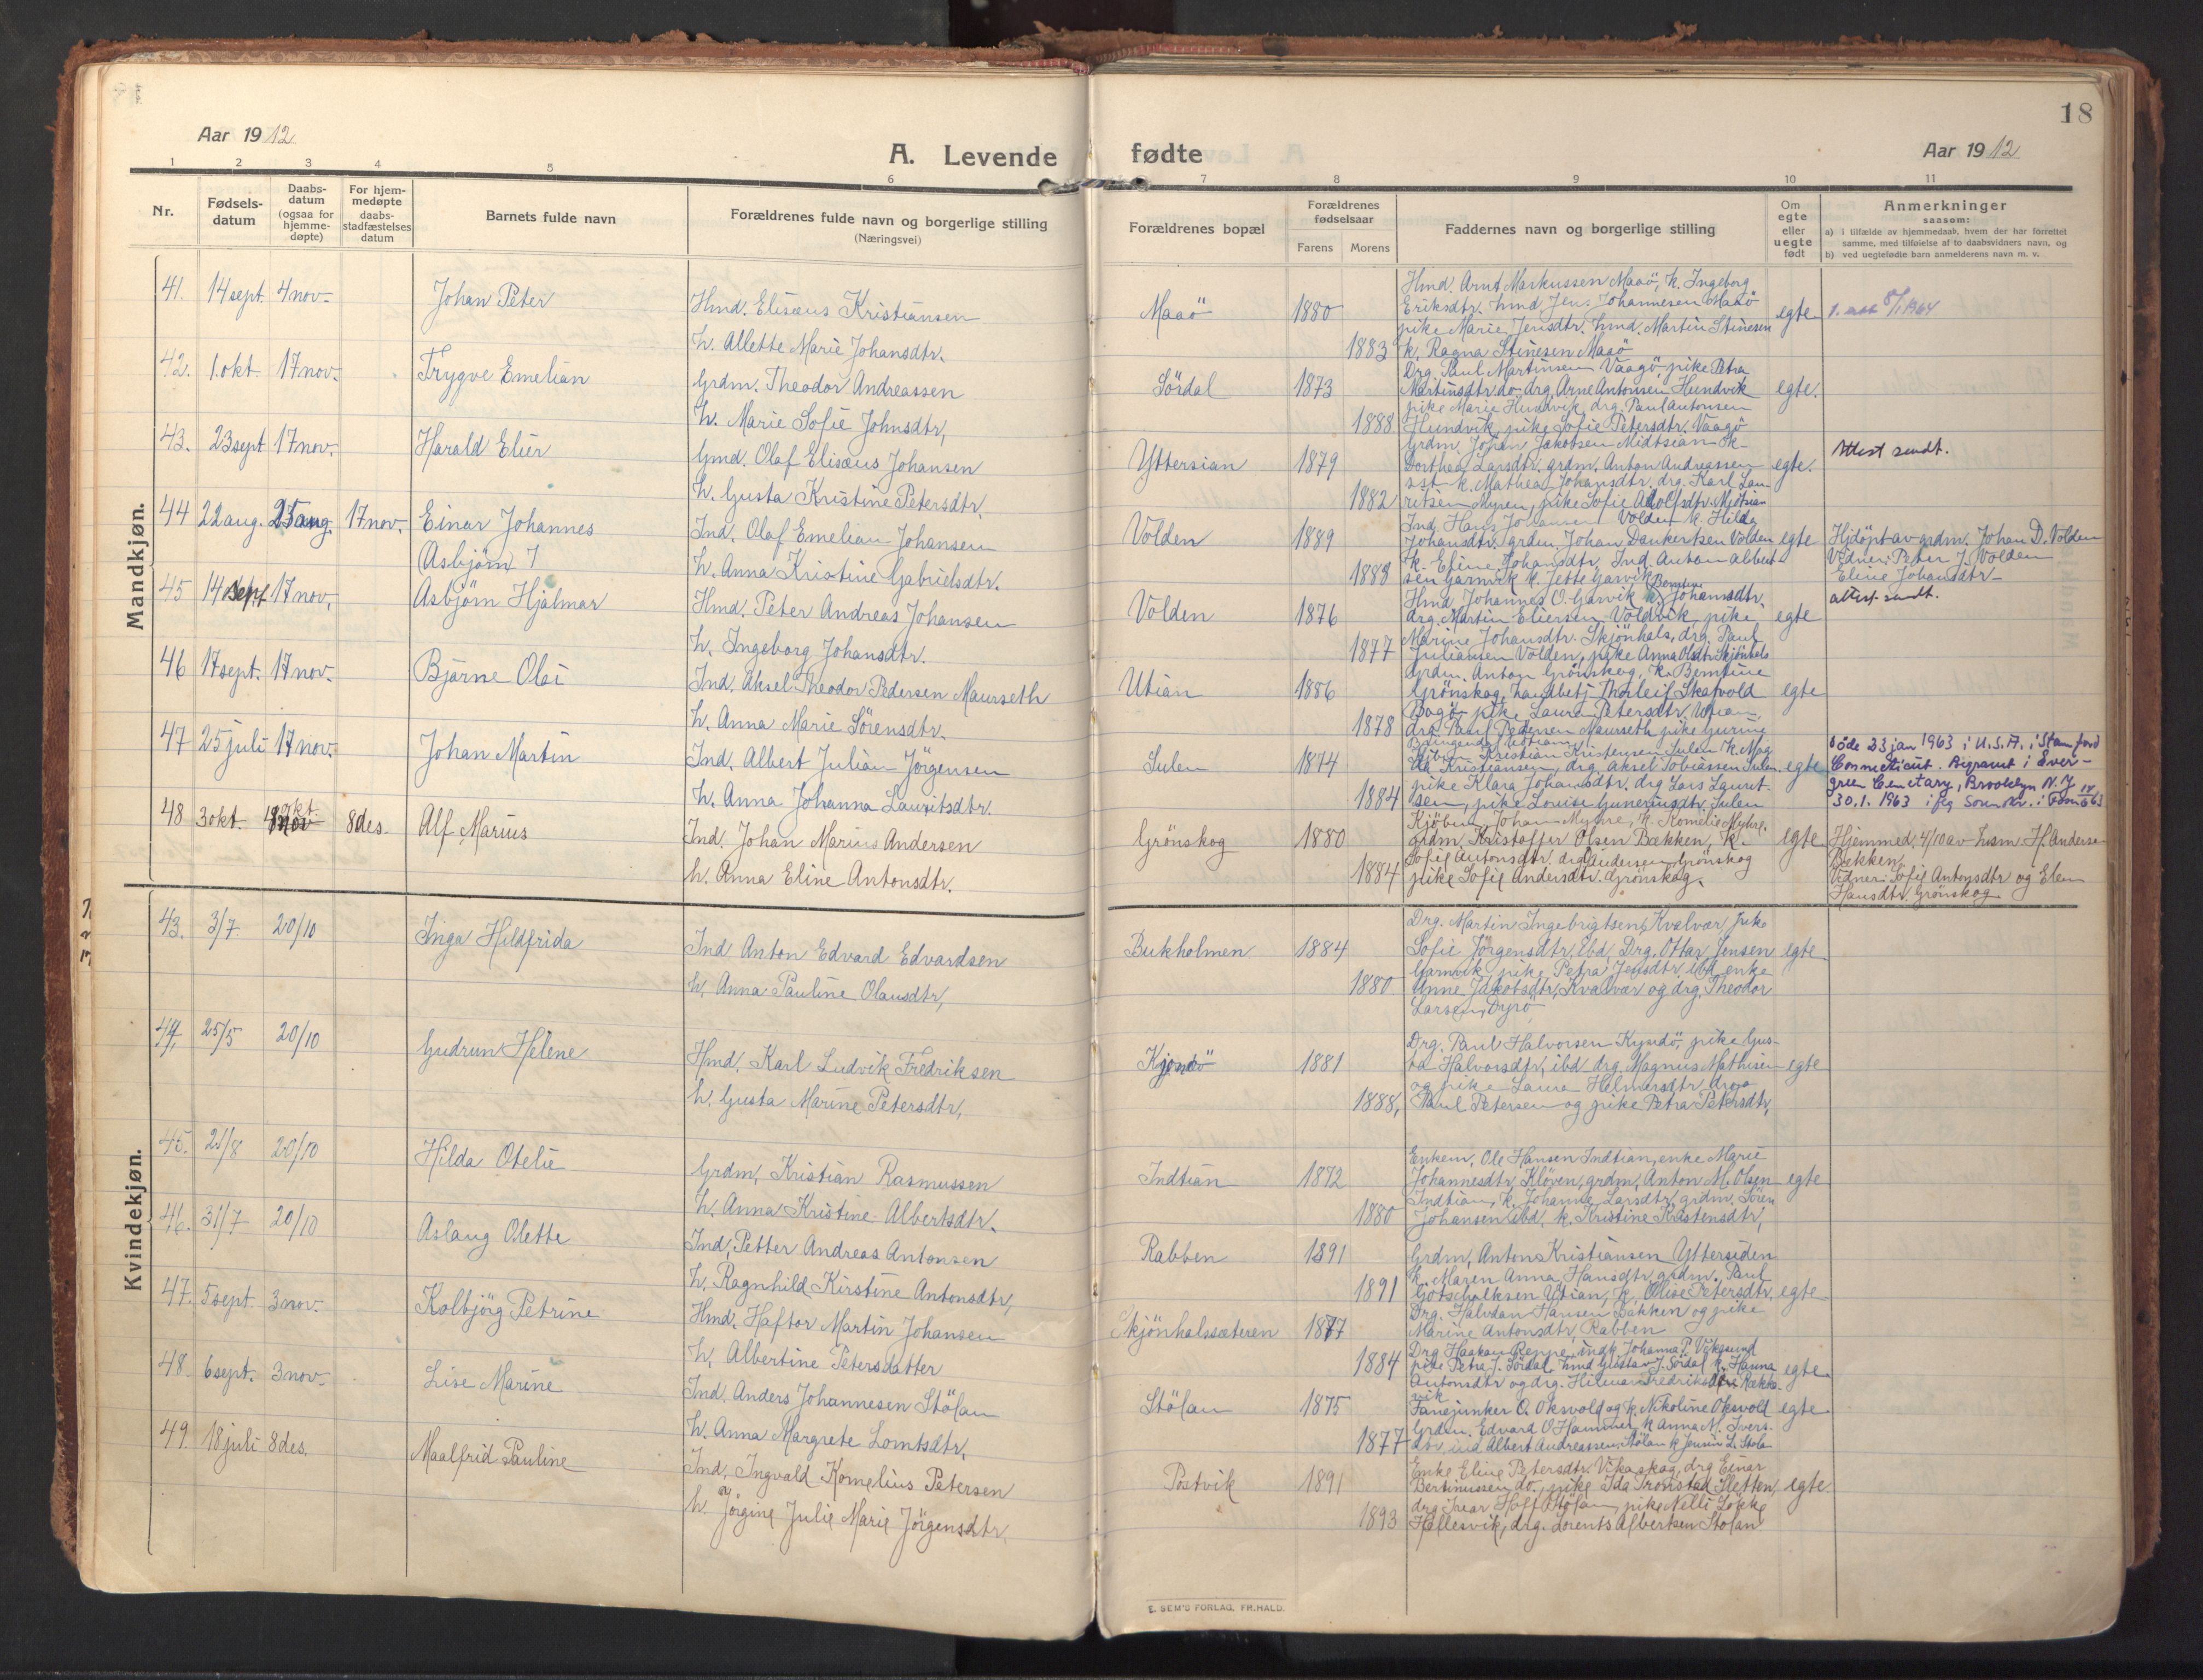 18
Aar 1912
A. Levende fødte
Aar 1912
1 2 3 4 5 6 7 8 9 10 11
Nr.
Fødsels-
datum
Daabs-
datum
(ogsaa for
hjemme-
døpte)
For hjem-
medøpte
daabs-
stadfæstelses
datum
Barnets fulde navn
Forældrenes fulde navn og borgerlige stilling
(Næringsvei)
Forældrenes bopæl
Forældrenes
fødselsaar
Farens Morens
Faddernes navn og borgerlige stilling
Om
egte
eller
uegte
født
Anmerkninger
saasom:
a) i tilfælde av hjemmedaab, hvem der har forrettet
samme, med tilføielse af to daabsvidners navn, og
b) ved uegtefødte barn anmelderens navn m. v.
Mandkjøn.
41. 14 sept. 4 nov. Johan Peter
Hmd. Elisæus Kristiansen
h. Allette Marie Johansdtr.
Maaö 1880
1883
Hmd. Arnt Markussen Maaö, k. Ingeborg
Eriksdtr. hmd Jens Johannesen Maaö
pike Marie Jensdtr. hmd. Martin Stinesen
k. Ragna Stinesen Maaö
egte
42. 1. okt. 17 nov. Trygve Emelian
Grdm. Theodor Andreassen
h. Marie Sofie Johnsdtr,
Sördal 1873
1888
Drg. Paul Martinsen Vaagö, pike Petra
Martinsdtr. do. drg. Arne Antonsen Hundvik
pike Marie Hundvik, drg. Paul Antonsen
Hundvik, pike Sofie Petersdtr. Vaagö
egte.
43. 23 sept 17 nov. Harald Elier
Gmd. Olaf Elisæus Johansen
h. Gusta Kristine Petersdtr.
Yttersian 1879
1882
Grdm. Johan Jakobsen Midtsian k.
Dorthea Larsdtr. grdm. Anton Andreassen
sst k. Mathea Johansdtr. drg. Karl Lau-
ritsen Myren, pike Sofie Adolfsdtr. Midtsian
egte.
Attest sendt.
44 22 aug. 25 aug. 17 nov. Einar Johannes
Asbjörn 7
Ind. Olaf Emelian Johansen
h. Anna Kristine Gabrielsdtr.
Volden 1889
1888
Ind. Hans Johansen Volden k. Hilda
Johansdtr. grdm. Johan Dankertsen Volden
k. Eline Johansdtr. Ind. Anton Albert-
sen Garnvik k. Jette Garvik
egte
Hjdöpt av grdm. Johan D. Volden
Vidner: Peter J. Volden
Eline Johansdtr.
attest sendt.
45 14 sept 17 nov. Asbjörn Hjalmar
Hmd. Peter Andreas Johansen
h. Ingeborg Johansdtr.
Volden 1876
1877
Hmd Johannes O. Garvik k. Johansdtr.
drg. Martin Eliersen Voldvik, pike
Marine Johansdtr. Skjönhals, drg. Paul
Juliansen Volden, pike Anna Olsdtr. Skjönhals
egte
46 17 sept. 17 nov. Bjarne Olai
Ind. Aksel Theodor Pedersen Maurseth
h. Anna Marie Sörensdtr.
Utian 1886
1878
Grdm. Anton Grönskog, k. Berntine
Grönskog, handbetj. Thorleif Skafvold
pike Laura Petersdtr. Utian,
drg. Paul Pedersen Maurseth pike Guring
egte
47 25 juli 17 nov. Johan Martin
Ind. Albert Julian Jörgensen
h. Anna Johanna Lauritsdtr.
Sulen 1874
1884
Kristian Kristensen Sulen k. Mag
da Kristiansen, drg. Aksel Tobiassen Sulen
pike Klara Johansdtr. drg Lars Laurit-
sen, pike Louise Guneriusdtr. Sulen
egte
Döde 23 jan 1963 i U.S.A. i Stamford
Connecticut. Begravet i Ever-
green Cemetary, Brooklyn N.Y
30.1. 1963
48 3 okt. 8 des. Alf Marius
Ind. Johan Marius Andersen
h. Anna Eline Antonsdtr.
Grönskog 1880
1884
Kjöbm. Johan Myhre, k. Kornelie Myhre.
grdm. Kristoffer Olsen Bækken, k.
Sofie Antonsdtr. drg Andersen Grönskog
pike Sofie Andersdtr. Grönskog.
egte
Hjemmed. 4/10 av husm. H. Andersen
Bækken.
Vidner: Sofie Antonsdtr og Elen
Hansdtr. Grönskog
Kvindekjøn.
43. 3/7 20/10 Inga Hildfrida
Ind Anton Edvard Edvardsen
h. Anna Pauline Olausdtr,
Bukholmen 1884
1880
Drg. Martin Ingebrigtsen, Kvalvær pike
Sofie Jörgensdtr, ibd, Drg. Ottar Jensen
Garnvik pike Petra Jensdtr, ibd, enke
Anne Jakobsdtr, Kvalvær og drg. Theodor
Larsen, Dyrö
egte
44, 25/5 20/10 Gudrun Helene
Hmd. Karl Ludvik Fredriksen
h. Gusta Marine Petersdtr,
1881
1888,
Drg. Paul Halvorsen pike Gus-
ta Halvorsdtr, ibd drg. Magnus Mathisen
og pike Laura Helmersdtr drg
Paul Petersen og pike Petra Petersdtr,
egte
45. 21/8 20/10 Hilda Otelie
Grdm, Kristian Rasmussen
h. Anna Kristine Albertsdtr.
Indtian 1872
1880
Enkem, Ole Hansen Indtian, enke Marie
Johannesdtr, Klöven, grdm, Anton M. Olsen
Indtian, k, Johanne Larsdtr, grdm, Sören
Johansen ibd, k. Kristine Kastensdtr,
egte
46. 31/7 20/10 Aslaug Olette
Ind, Petter Andreas Antonsen
h. Ragnhild Kirstine Antonsdtr,
Rabben 1891
1891
Grdm, Anton Kristiansen Yttersiden
k. Maren Anna Hansdtr, grdm, Paul
Gotschalksen Utian, k, Olise Petersdtr,
Drg. Halvdan Hansen Bækken og pike
Marine Antonsdtr, Rabben
egte
47. 5 sept. 3 nov. Kolbjörg Petrine
Hmd. Haftor Martin Johansen
h. Albertine Petersdatter
Skjönhalssæteren 1877
1884
Drg Haakon Reppe, indk Johanna P. Viksund
pike Petra J. Sördal, hmd Gustav J. Sördal k. Hanna
Antonsdtr og drg. Hilmar Fredriksen
egte
48. 6 sept. 3 nov. Lise Marine
Ind. Anders Johannesen Stölan
h. Anna Margrete Lorntsdtr,
Stölan 1875
1877
Fanejunker O. Oksvold og k. Nikoline Oksvold
Grdm. Edvard O Hammer, k Anna M. Ivers-
dtr, ind Albert Andreassen, Stölan k Jensine L. Stölan
egte
49. 18 juli 8 des. Maalfrid Pauline
Ind, Ingvald Kornelius Petersen
h. Jörgine Julie Marie Jörgensdtr,
Postvik 1891
1893
Enke Eline Petersdtr. Vikaskog, drg Einar
Bertinussen do., pike Ida Tronstad Sletten,
drg Ivar Hoff Stölan, pike Nelli Lökke
Hellesvik, drg. Lorents Albertsen Stölan
egte.
E. SEM'S FORLAG, FR.HALD.